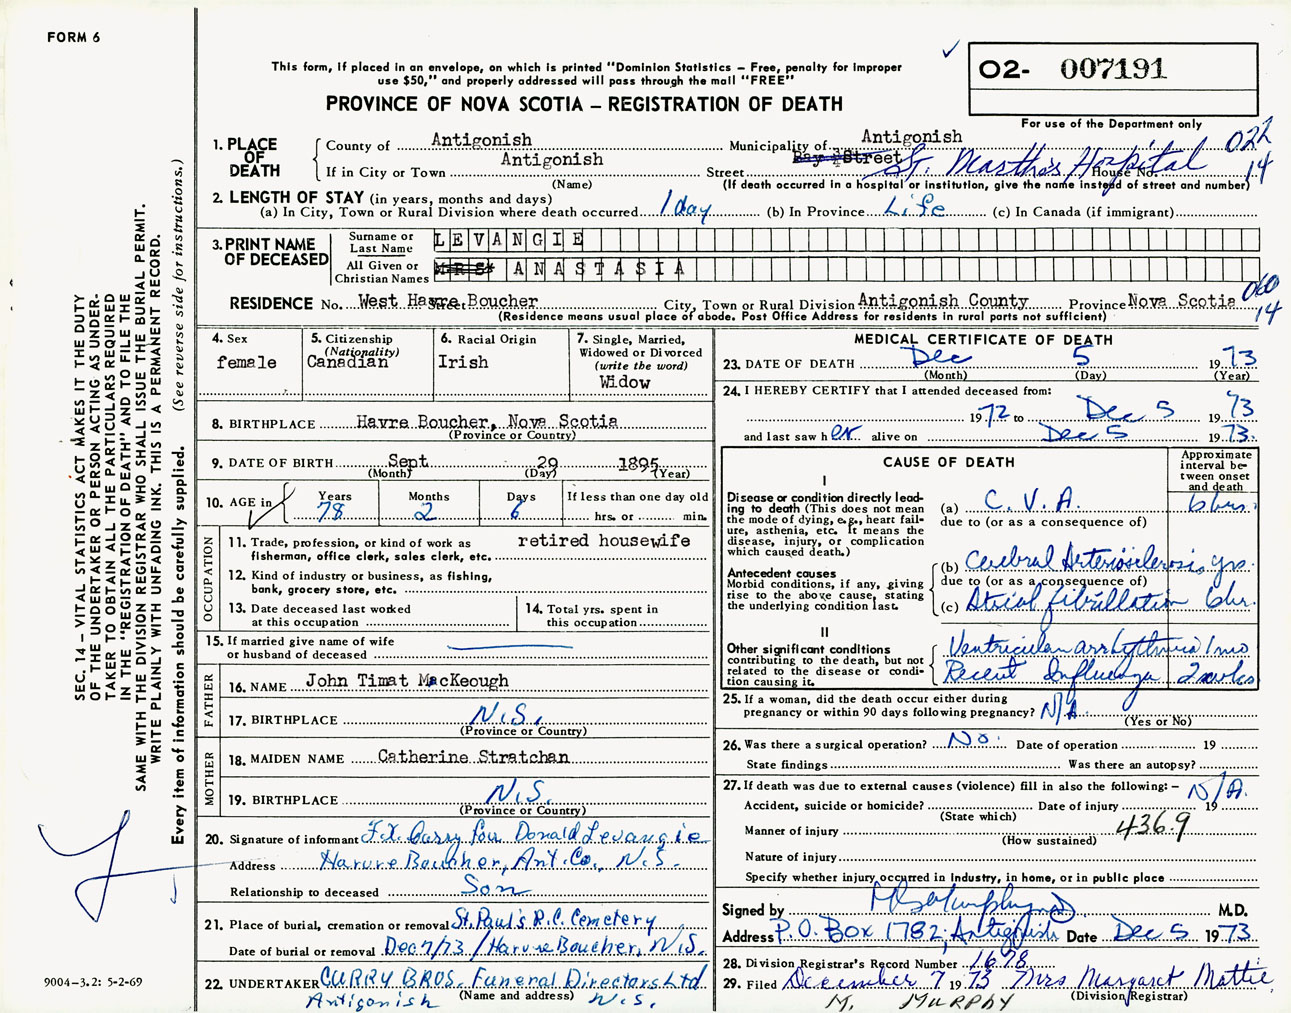 FORM 6
This form, if placed in an envelope, on which is printed "Dominion Statistics – Free, penalty for improper
use $50," and properly addressed will pass through the mail "FREE"
PROVINCE OF NOVA SCOTIA – REGISTRATION OF DEATH
02- 007191
For use of the Department only
022
14
1. PLACE OF DEATH
County of Antigonish Municipality of Antigonish
If in City or Town Antigonish (Name) Street Bay Street St. Martha's Hospital House No.
(If death occurred in a hospital or institution, give the name instead of street and number)
2. LENGTH OF STAY (in years, months and days)
(a) In City, Town or Rural Division where death occurred 1 day (b) In Province Life (c) In Canada (if immigrant)
3. PRINT NAME OF DECEASED
Surname or Last Name LEVANGIE
All Given or Christian Names MRS. ANASTASIA
RESIDENCE No. West Havre Boucher Street City, Town or Rural Division Antigonish County Province Nova Scotia
060
14
(Residence means usual place of abode. Post Office Address for residents in rural parts not sufficient)
4. Sex
female
5. Citizenship (Nationality)
Canadian
6. Racial Origin
Irish
7. Single, Married, Widowed or Divorced (write the word)
Widow
8. BIRTHPLACE Havre Boucher, Nova Scotia
(Province or Country)
9. DATE OF BIRTH Sept 29 1895
(Month) (Day) (Year)
10. AGE in Years 78 Months 2 Days 6 If less than one day old hrs. or min.
OCCUPATION
11. Trade, profession, or kind of work as fisherman, office clerk, sales clerk, etc. retired housewife
12. Kind of industry or business, as fishing, bank, grocery store, etc.
13. Date deceased last worked at this occupation
14. Total yrs. spent in this occupation
15. If married give name of wife or husband of deceased
FATHER
16. NAME John Timat MacKeough
17. BIRTHPLACE N.S.
(Province or Country)
MOTHER
18. MAIDEN NAME Catherine Stratchan
19. BIRTHPLACE N.S.
(Province or Country)
20. Signature of informant F.X. Curry for Donald Levangie
Address Harvre Boucher, Ant. Co., N.S.
Relationship to deceased Son
21. Place of burial, cremation or removal St. Paul's R.C. Cemetery
Date of burial or removal Dec 7/73 / Harvre Boucher, N.S.
22. UNDERTAKER CURRY BROS. Funeral Directors Ltd
(Name and address)
Antigonish N.S.
MEDICAL CERTIFICATE OF DEATH
23. DATE OF DEATH Dec 5 1973
(Month) (Day) (Year)
24. I HEREBY CERTIFY that I attended deceased from:
1972 to Dec 5 1973
and last saw her alive on Dec 5 1973.
CAUSE OF DEATH
Approximate interval between onset and death
I
Disease or condition directly leading to death (This does not mean the mode of dying, e.g., heart failure, asthenia, etc. It means the disease, injury, or complication which caused death.)
(a) C.V.A. 6 hrs.
due to (or as a consequence of)
Antecedent causes
Morbid conditions, if any, giving rise to the above cause, stating the underlying condition last.
(b) Cerebral Arteriosclerosis, yrs.
due to (or as a consequence of)
(c) Atrial fibrillation 6 hr.
II
Other significant conditions
contributing to the death, but not related to the disease or condition causing it.
Ventricular arrhythmia 1 mo
Recent Influenza 2 wks
25. If a woman, did the death occur either during pregnancy or within 90 days following pregnancy? N/A
(Yes or No)
26. Was there a surgical operation? No. Date of operation 19
State findings Was there an autopsy?
27. If death was due to external causes (violence) fill in also the following: – N/A.
Accident, suicide or homicide? Date of injury 19
(State which)
Manner of injury 436.9
(How sustained)
Nature of injury
Specify whether injury occurred in industry, in home, or in public place
Signed by M.D.
Address P.O. Box 1782, Antigonish Date Dec 5 1973
28. Division Registrar's Record Number 1678
29. Filed December 7 1973 Mrs Margaret Mattie
(Division Registrar)
M. MURPHY
SEC. 14 – VITAL STATISTICS ACT MAKES IT THE DUTY
OF THE UNDERTAKER OR PERSON ACTING AS UNDERTAKER TO OBTAIN ALL THE PARTICULARS REQUIRED
IN THE "REGISTRATION OF DEATH" AND TO FILE THE
SAME WITH THE DIVISION REGISTRAR WHO SHALL ISSUE THE BURIAL PERMIT.
WRITE PLAINLY WITH UNFADING INK. THIS IS A PERMANENT RECORD.
Every item of information should be carefully supplied. (See reverse side for instructions.)
9004–3.2: 5-2-69